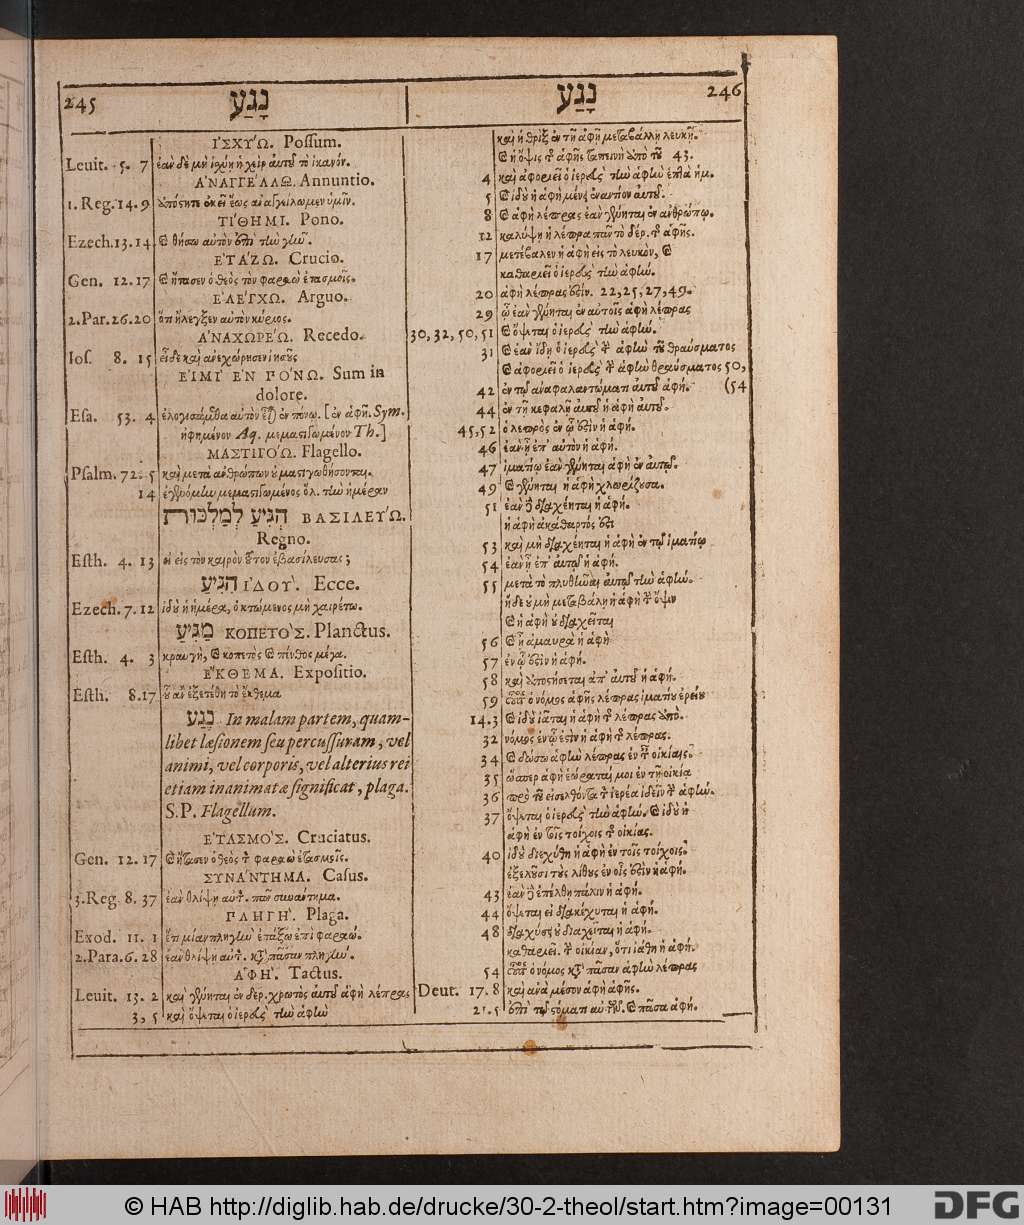 245 נָגַע
ἸΣΧΎΩ. Possum.
Leuit. 5. 7 ἐὰν δὲ μὴ ἰχύῃ ἡ χεὶρ αὐτοῦ τὸ ἱκανόν.
ἈΝΑΓΓΕΛΛΩ. Annuntio.
1. Reg. 14. 9 ἕως
ΤΊΘΗΜΙ. Pono.
Ezech. 13. 14 καὶ θήσω αὐτὸν ἐπὶ τὴν γῆν.
ἘΤΆΖΩ. Crucio.
Gen. 12. 17 καὶ ἤτασεν ὁ θεὸς τὸν φαραὼ ἐτασμοῖς.
ἘΛΈΓΧΩ. Arguo.
2. Par. 26. 20 ὅτι ἤλεγξεν αὐτὸν κύριος.
ἈΝΑΧΩΡΈΩ. Recedo.
Ios. 8. 15 εἶδε καὶ ἀνεχώρησεν ἰησοῦς
ΕἸΜῚ ἘΝ ΠΌΝΩ. Sum in
dolore.
Esa. 53. 4 ἐλογισάμεθα αὐτὸν εἶναι ἐν πόνῳ. [ἐν ἁφῇ. Sym.
ἡφημένον Aq. μεμαστιγωμένον Th.]
ΜΑΣΤΙΓΌΩ. Flagello.
Psalm. 72. 5 καὶ μετὰ ἀνθρώπων οὐ μαστιγωθήσονται.
14 ἐγενόμην μεμαστιγωμένος ὅλ. τὴν ἡμέραν
הִגִּיעַ לְמַלְכוּת ΒΑΣΙΛΕΎΩ.
Regno.
Esth. 4. 13 εἰ εἰς τὸν καιρὸν τοῦτον ἐβασίλευσας;
הִגִּיעַ ἸΔΟΎ. Ecce.
Ezech. 7. 12 ἰδοὺ ἡ ἡμέρα, ὁ κτώμενος μὴ χαιρέτω.
מַגִּיעַ ΚΟΠΕΤῸΣ. Planctus.
Esth. 4. 3 κραυγὴ, καὶ κοπετὸς καὶ πένθος μέγα.
ἜΚΘΕΜΑ. Expositio.
Esth. 8. 17 οὗ ἂν ἐξετέθη τὸ ἔκθεμα
נֶגַע In malam partem, quam-
libet læsionem seu percussuram, vel
animi, vel corporis, vel alterius rei
etiam inanimatæ significat, plaga.
S.P. Flagellum.
ἘΤΑΣΜΌΣ. Cruciatus.
Gen. 12. 17 καὶ ἤτασεν ὁ θεὸς τὸν φαραὼ ἐτασμοῖς.
ΣΥΝΆΝΤΗΜΑ. Casus.
3. Reg. 8. 37 ἐὰν θλίψῃ αὐτ. πᾶν συνάντημα.
ΠΛΗΓΉ. Plaga.
Exod. 11. 1 ἔτι μίαν πληγὴν ἐπάξω ἐπὶ φαραώ.
2. Para. 6. 28 ἐὰν θλίψῃ αὐτ. κατὰ πᾶσαν πληγήν.
ἉΦΉ. Tactus.
Leuit. 13. 2 καὶ γένηται ἐν δέρ. χρωτὸς αὐτοῦ ἁφὴ λέπρας
3, 5 καὶ ὄψεται ὁ ἱερεὺς τὴν ἁφὴν
נָגַע 246
καὶ ἡ θρὶξ ἐν τῇ ἁφῇ μεταβάλλῃ λευκή.
καὶ ἡ ὄψις τῆς ἁφῆς ταπεινὴ ἀπὸ τοῦ 43.
4 καὶ ἀφοριεῖ ὁ ἱερεὺς τὴν ἁφὴν ἑπτὰ ἡμ.
5 καὶ ἰδοὺ ἡ ἁφὴ μένει ἐναντίον αὐτοῦ.
8 καὶ ἁφὴ λέπρας ἐὰν γένηται ἐν ἀνθρώπῳ.
12 καλύψῃ ἡ λέπρα πᾶν τὸ δέρ. τῆς ἁφῆς.
17 μετέβαλεν ἡ ἁφὴ εἰς τὸ λευκὸν, καὶ
καθαριεῖ ὁ ἱερεὺς τὴν ἁφήν.
20 ἁφὴ λέπρας ἐστίν. 22, 25, 27, 49.
29 ᾧ ἐὰν γένηται ἐν αὐτοῖς ἁφὴ λέπρας
30, 32, 50, 51 καὶ ὄψεται ὁ ἱερεὺς τὴν ἁφήν.
31 καὶ ἐὰν ἴδῃ ὁ ἱερεὺς τὴν ἁφὴν τοῦ θραύσματος
καὶ ἀφοριεῖ ὁ ἱερεὺς τὴν ἁφὴν θραύσματος 50,
42 ἐν τῷ ἀναφαλαντώματι αὐτοῦ ἁφή. (54
44 ἐν τῇ κεφαλῇ αὐτοῦ ἡ ἁφὴ αὐτοῦ.
45, 52 ὁ λεπρὸς ἐν ᾧ ἐστὶν ἡ ἁφή.
46 ἐὰν ᾖ ἐπ' αὐτὸν ἡ ἁφή.
47 ἱματίῳ ἐὰν γένηται ἁφὴ ἐν αὐτῷ.
49 καὶ γένηται ἡ ἁφὴ χλωρίζουσα.
51 ἐὰν δὲ διαχέηται ἡ ἁφή.
ἡ ἁφὴ ἀκάθαρτός ἐστι
53 καὶ μὴ διαχέηται ἡ ἁφὴ ἐν τῷ ἱματίῳ
54 ἐὰν ᾖ ἐπ' αὐτοῦ ἡ ἁφή.
55 μετὰ τὸ πλυθῆναι αὐτοῦ τὴν ἁφήν.
ἥδε οὐ μὴ μεταβάλῃ ἡ ἁφὴ τὴν ὄψιν
καὶ ἡ ἁφὴ οὐ διαχεῖται
56 καὶ ᾖ ἀμαυρὰ ἡ ἁφὴ
57 ἐν ᾧ ἐστὶν ἡ ἁφή.
58 καὶ ἀποστήσεται ἀπ' αὐτοῦ ἡ ἁφή.
59 οὗτος ὁ νόμος ἁφῆς λέπρας ἱματίου ἐρέου
14. 3 καὶ ἰδοὺ ἰᾶται ἡ ἁφὴ τῆς λέπρας ἀπὸ.
32 νόμος ἐν ᾧ ἐστὶν ἡ ἁφὴ τῆς λέπρας.
34 καὶ δώσω ἁφὴν λέπρας ἐν ταῖς οἰκίαις
35 ὥσπερ ἁφὴ ἑώραταί μοι ἐν τῇ οἰκίᾳ
36 πρὸ τοῦ εἰσελθόντα τὸν ἱερέα ἰδεῖν τὴν ἁφήν.
37 ὄψεται ὁ ἱερεὺς τὴν ἁφήν. καὶ ἰδοὺ ἡ
ἁφὴ ἐν τοῖς τοίχοις τῆς οἰκίας.
40 ἰδοὺ διεχύθη ἡ ἁφὴ ἐν τοῖς τοίχοις.
ἐξελοῦσι τοὺς λίθους ἐν οἷς ἐστὶν ἡ ἁφή.
43 ἐὰν δὲ ἐπέλθῃ πάλιν ἡ ἁφή.
44 ὄψεται εἰ διακέχυται ἡ ἁφή.
48 διαχύσει οὐ διαχεῖται ἡ ἁφή.
καθαριεῖ. τὴν οἰκίαν, ὅτι ἰάθη ἡ ἁφή.
54 οὗτος ὁ νόμος κατὰ πᾶσαν ἁφὴν λέπρας
Deut. 17. 8 καὶ ἀνὰ μέσον ἁφὴ ἁφῆς.
21. 5 ἐπὶ τῷ στόματι αὐτῶν. καὶ πᾶσα ἁφή.
© HAB http://diglib.hab.de/drucke/30-2-theol/start.htm?image=00131
DFG